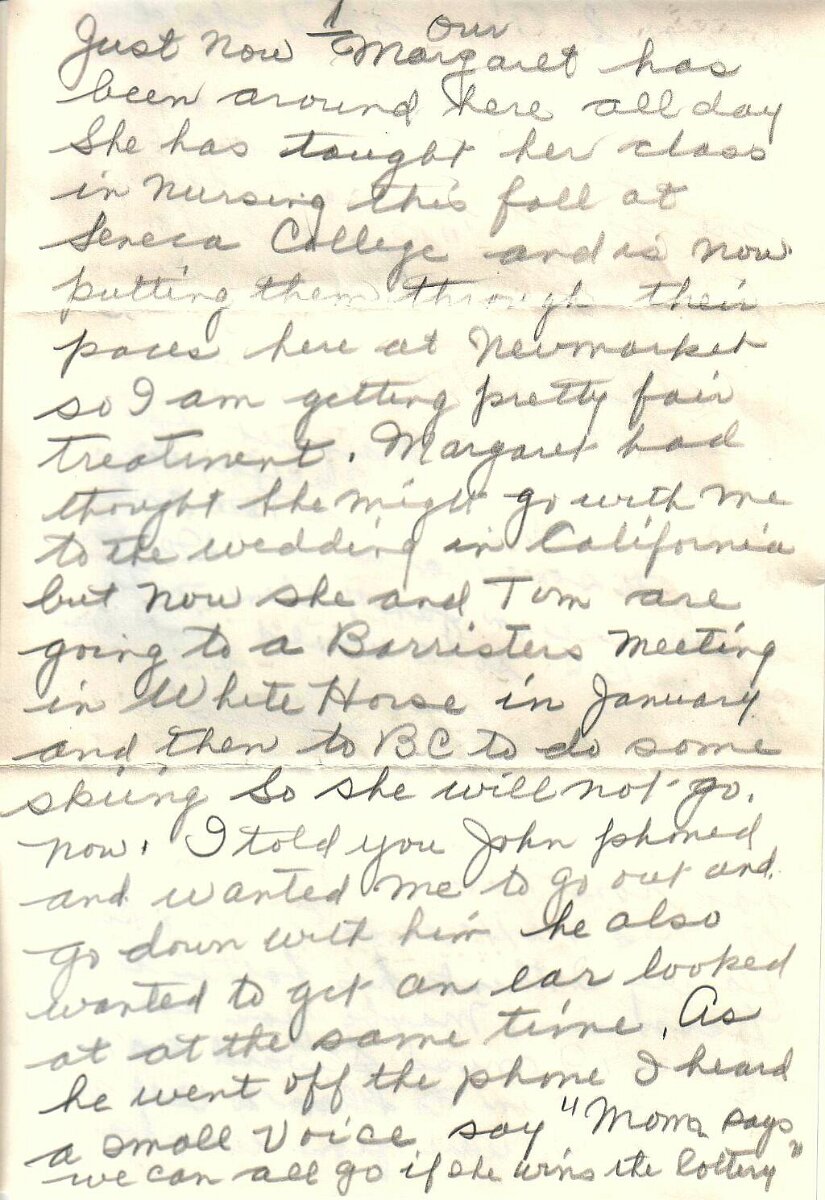 Just now our Margaret has
been around here all day
She has taught her class
in Nursing this fall at
Seneca College and is now
putting them through their
paces here at Newmarket
so I am getting pretty fair
treatment. Margaret had
thought she might go with me
to the wedding in California
but now she and Tom are
going to a Barristers Meeting
in White Horse in January
and then to BC to do some
skiing So she will not go.
now. I told you John phoned
and wanted me to go out and
go down with him he also
wanted to get an ear looked
at at the same time. As
he went off the phone I heard
a small voice say "Mom says
we can all go if she wins the lottery"